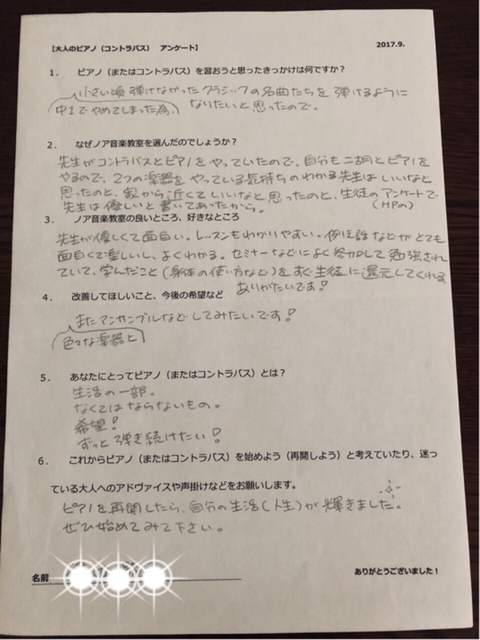 【大人のピアノ（コントラバス）　アンケート】　2017.9.
1．　ピアノ（またはコントラバス）を習おうと思ったきっかけは何ですか？
小さい頃 弾けなかったクラシックの名曲たちを 弾けるように
中1でやめてしまった為、 なりたいと思ったので。
2．　なぜノア音楽教室を選んだのでしょうか？
先生がコントラバスとピアノをやっていたので、自分も二胡とピアノを
やるので、2つの楽器をやっている気持ちのわかる先生はいいなと
思ったのと、家から近くていいなと思ったのと、生徒のアンケートで
(HPの)
先生は優しいと書いてあったから。
3．　ノア音楽教室の良いところ、好きなところ
先生が優しくて面白い。レッスンもわかりやすい。例え話などがとても
面白くて楽しいし、よくわかる。セミナーなどによく参加して勉強され
ていて、学んだこと(身体の使い方など)をすぐ生徒に還元してくれる
ありがたいです！
4．　改善してほしいこと、今後の希望など
またアンサンブルなどしてみたいです！
色々な楽器と
5．　あなたにとってピアノ（またはコントラバス）とは？
生活の一部。
なくてはならないもの。
希望！
ずっと弾き続けたい！
6．　これからピアノ（またはコントラバス）を始めよう（再開しよう）と考えていたり、迷っ
ている大人へのアドヴァイスや声掛けなどをお願いします。
ピアノを再開したら、自分の生活(人生)が輝きました。
ぜひ始めてみて下さい。
名前
ありがとうございました！